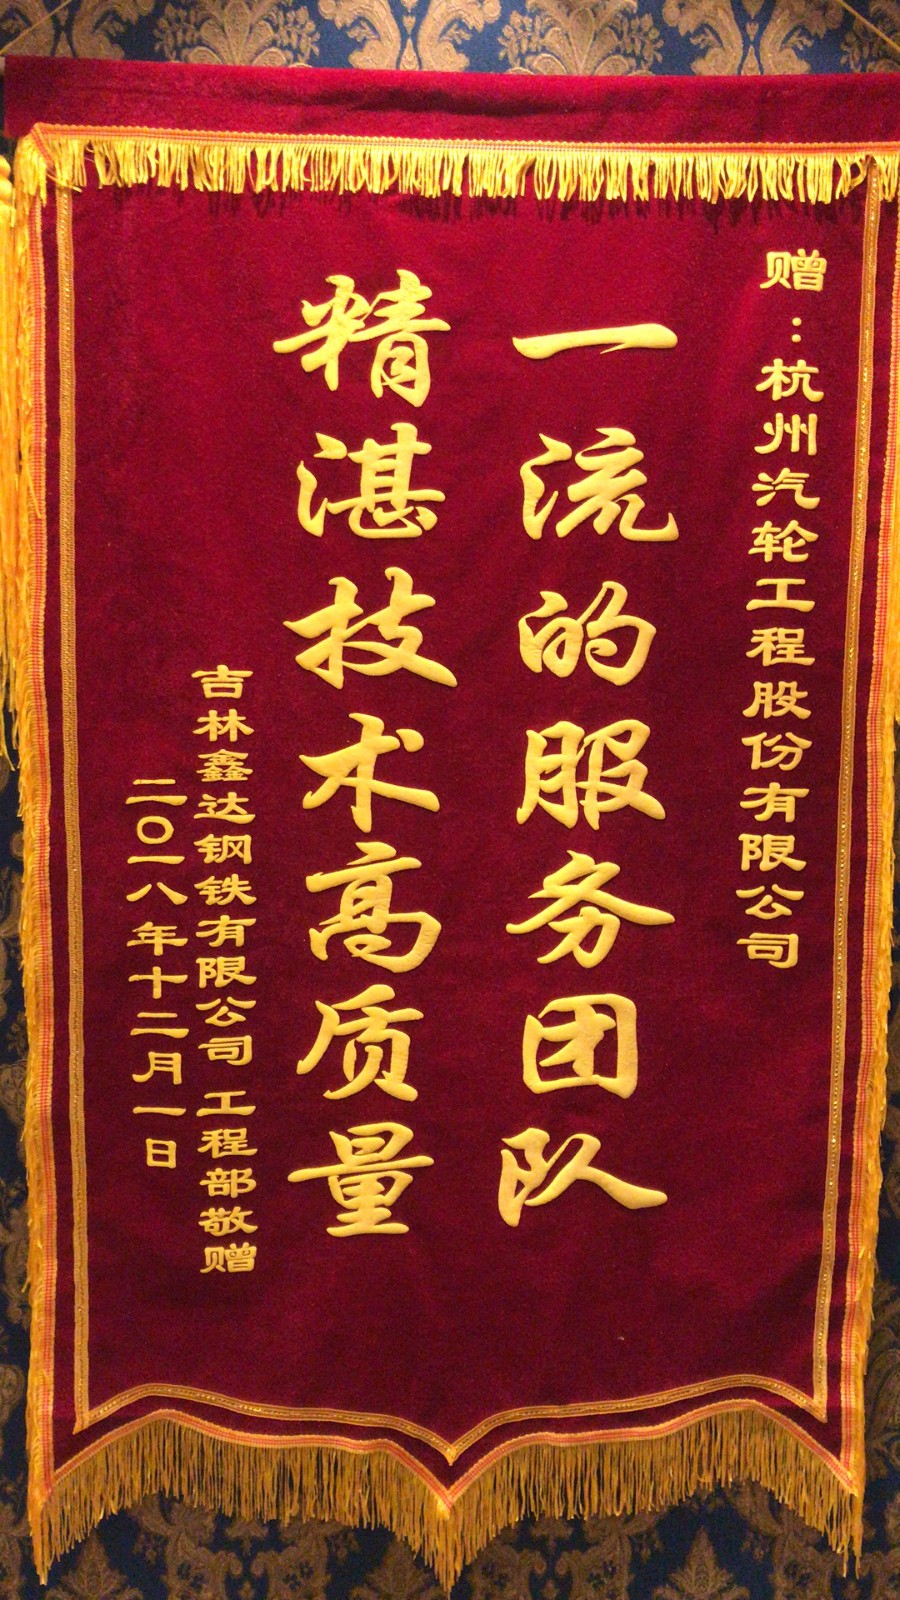 赠：杭州汽轮工程股份有限公司
一流的服务团队
精湛技术高质量
吉林鑫达钢铁有限公司 工程部敬赠
二〇一八年十二月一日